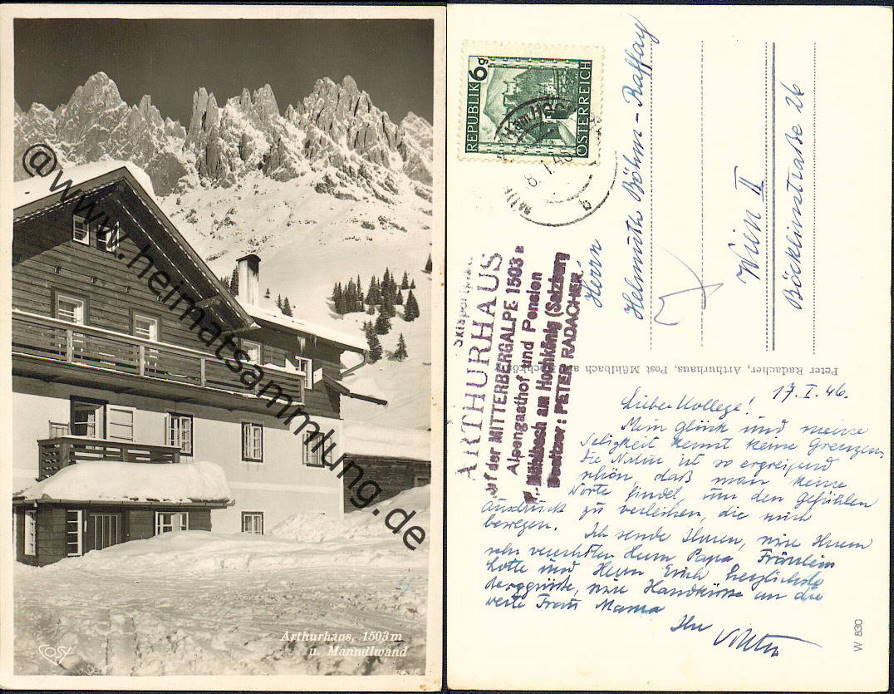 @www.heimatsammlung.de
Arthurhaus, 1503 m
u. Mandlwand
COSY
REPUBLIK 6g ÖSTERREICH
Skisportplatz
ARTHURHAUS
auf der MITTERBERGALPE 1503 m
Alpengasthof und Pension
P. Mühlbach am Hochkönig (Salzburg
Besitzer: PETER RADACHER
Herrn
Helmuth Böhm-Raffay
Wien II
Böcklinstraße 26
Peter Radacher, Arthurhaus, Post Mühlbach am Hochkönig
17. I. 46.
Lieber Kollege!
Mein Glück und meine
Seligkeit kennt keine Grenzen,
die Natur ist so ergreifend
schön daß man keine
Worte findet, um den Gefühlen
Ausdruck zu verleihen, die mich
bewegen.
Ich sende Ihnen, wie Ihrem
sehr verehrten Herrn Papa, Fräulein
Lotte und Herrn Erich herzlichste
Berggrüße, wie Handküsse an die
werte Frau Mama
Ihr Viktor
W 830